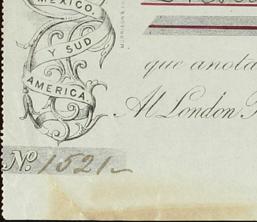 MEXICO,
Y SUD
AMERICA
que anota
Al London
Nº 1521